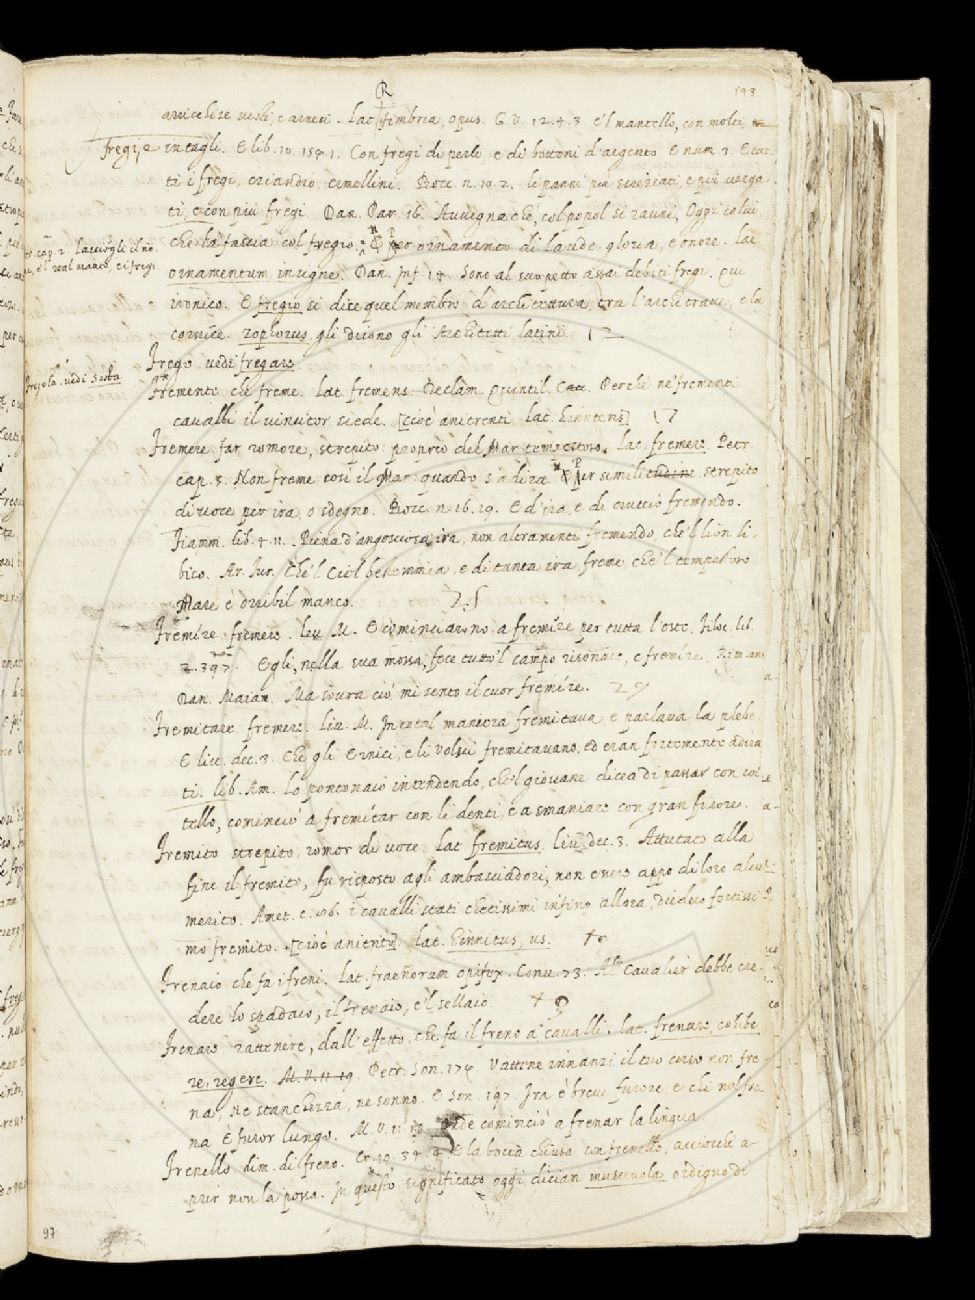 R
193
arricchire vesti, e arnesi. Lat. fimbria, opus. G. V. 12. 4. 3. e'l mantello, con molti
fregi, e intagli. E lib. 10. 154. 1. Con fregi di perle, e di bottoni d'argento. E num. 3. E tut-
ti i fregi, eziandio, ermellini. Bocc. n. 10. 2. li panni più screziati, e più verga-
ti, e con più fregi. Dan. Par. 16. Avvegna che, col popol si rauni, Oggi colui,
che la fascia col fregio. E per ornamento di laude, gloria, e onore. lat.
cap. 2. Lacciogli il no
mal manco, e i fregi
ornamentum insigne. Dan. Inf. 14. Sono al suo petto assai debiti fregi. qui
ironico. E fregio si dice quel membro d'architettura, tra l'architrave, e la
cornice. zophorus. gli dicono gli Architetti latini. 12
Frego. vedi fregare.
Fregola. vedi
Fremente. che freme. Lat. fremens. Declam. Quintil. Perchè ne' frementi
cavalli il vincitor siede. [cioè anitrenti lat. hinniens] 17
Fremere. far romore, strepito: proprio del Mar tempestoso. Lat. fremere. Petr.
cap. 3. Non freme così il Mar: quando s'adira. E per similitudine. strepito
di voce per ira, o sdegno. Bocc. n. 16. 19. E d'ira, e di cruccio fremendo.
Fiamm. lib. 4. 11. Piena d'angosciosa ira, non altramenti fremendo, che'l lion li-
bico. Ar. Fur. Che'l Ciel bestemmia, e di tanta ira freme, che'l tempestoso
Mare è orribil manco. 25
Fremíre. fremere. Liv. M. E cominciarono a fremíre per tutta l'oste. Filoc. lib.
2. 397. Egli, nella sua mossa, fece tutto'l campo risonare, e fremíre. Rim. ant.
Dan. Maian. Ma sovra ciò mi sento il cuor fremíre. 29
Fremitare. fremere. Liv. M. In cotal maniera fremitava, e parlava la plebe.
E Liv. dec. 3. Che gli Ernici, e li Volsci fremitavano, ed eran fortemente adira-
ti. lib. Am. Lo pontonaio intendendo, che'l giovane dicea di passar con col-
tello, cominciò a fremitar con li denti, e a smaniare con gran furore.
Fremito. strepito, romor di voce. lat. fremitus. Liv. dec. 3. Attutato alla
fine il fremito, fu risposto agli ambasciadori, non essere appo di loro alcun
merito. Amet. c. i cavalli stati chetissimi infino allora, diedero fortissi-
mo fremito. [cioè anitrito]. lat. hinnitus, us.
Frenaio. che fa i freni. Lat. fraenorum opifex. Conv. 73. Al Cavalier debbe cre-
dere lo spadaio, il frenaio, e'l sellaio.
Frenare. rattenere, dall'effetto, che fa il freno a' cavalli. lat. frenare, cohibe-
re, regere. M. V. 11. 19. Petr. Son. 174. Vattene innanzi il tuo corso non fre-
na, Ne stanchezza, ne sonno. E son. 197. Ira è breve furore, e chi nol fre-
na È furor lungo. M. V. 11. 19. cominciò a frenar la lingua
Frenello. dim. di freno. Cr. 10. 34. 4. E la bocca chiusa con frenello, acciocchè a-
prir non la possa. In questo significato oggi dician museruola ordigno di
97